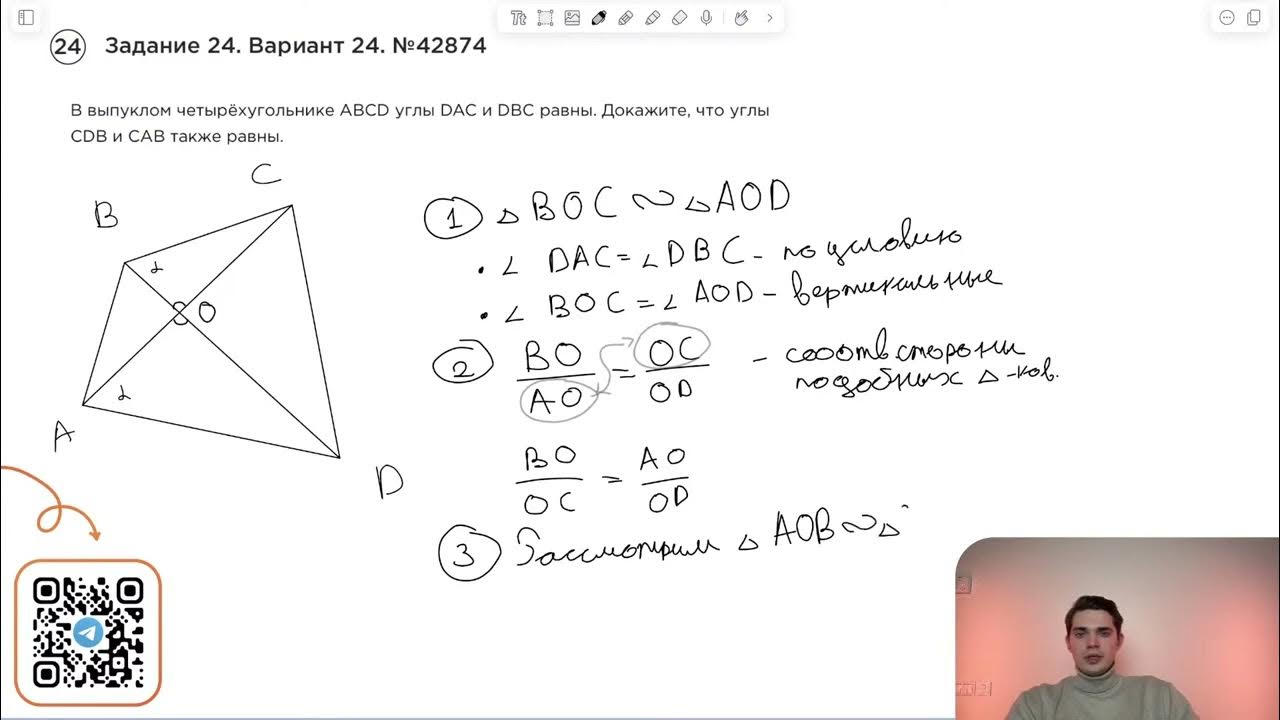 24 Задание 24. Вариант 24. №42874
В выпуклом четырёхугольнике ABCD углы DAC и DBC равны. Докажите, что углы
CDB и CAB также равны.
C
B
α
O
α
A
D
1 △ BOC ∾ △AOD
• ∠ DAC = ∠DBC – по условию
• ∠ BOC = ∠ AOD – вертикальные
2 BO/AO = OC/OD – соотв стороны
подобных △-ков.
BO/OC = AO/OD
3 Рассмотрим △ AOB ∾ △